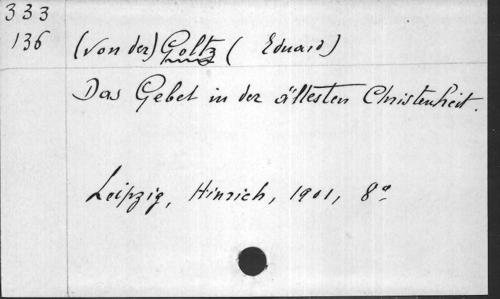 333
136
(von der) Goltz (Eduard)
Das Gebet in der ältesten Christenheit.
Leipzig, Hinrich, 1901, 8º